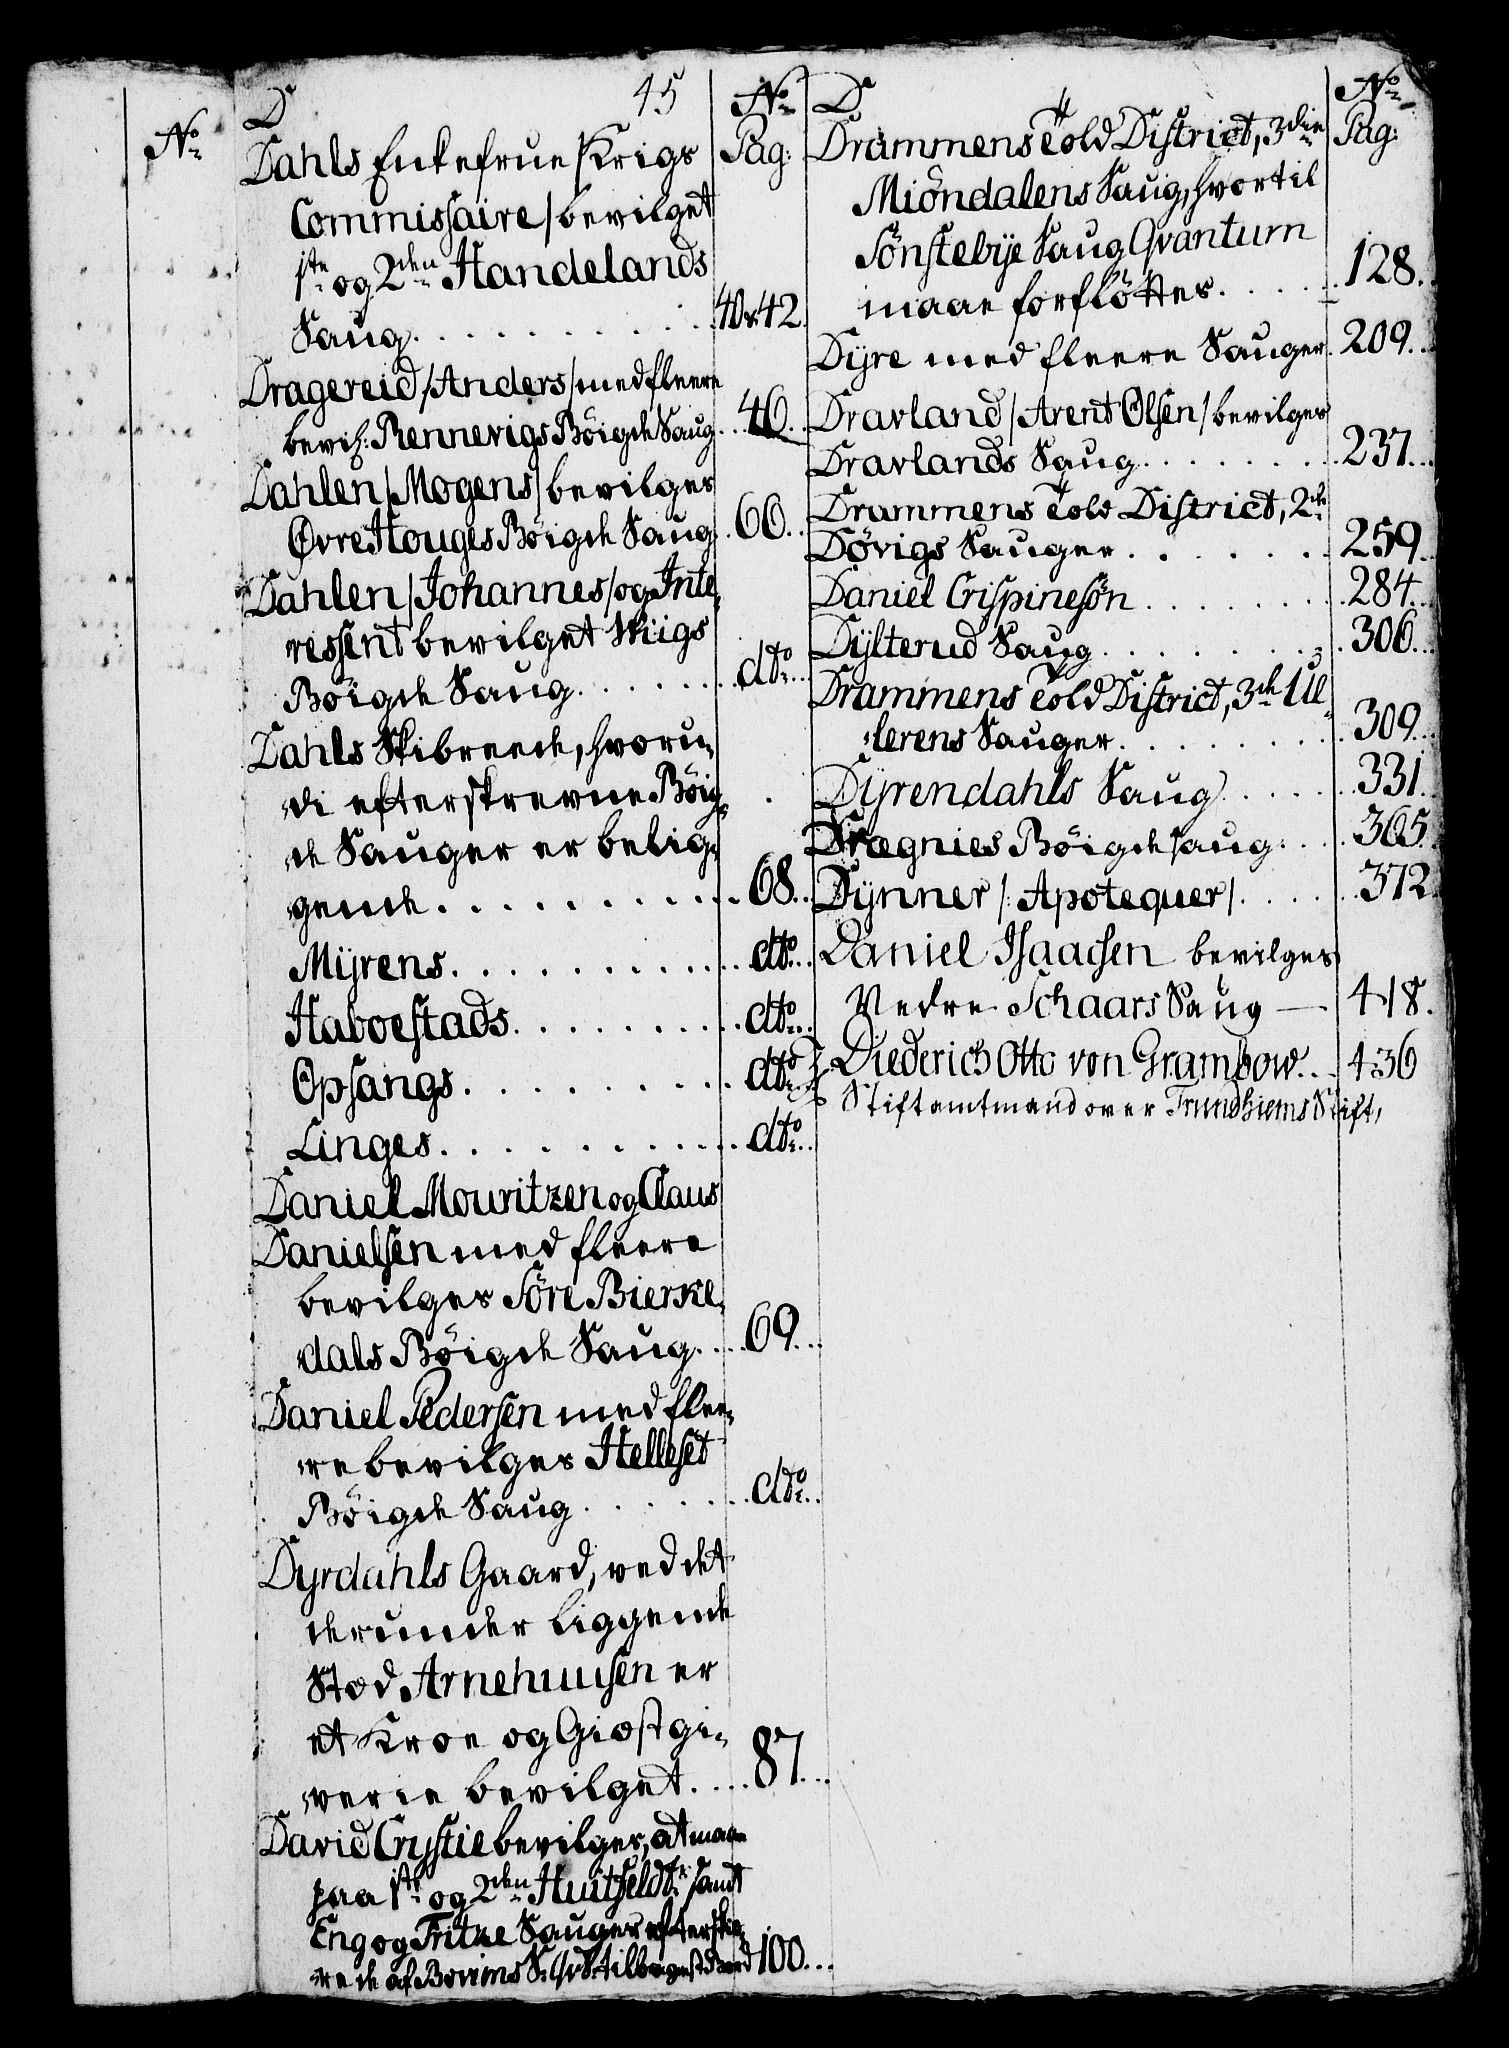 No
D
45
No
Pag:
Dahls Enkefrue/Krigs
Commissaire/bevilget
1ste og 2den Handelands
Saug. . . . . . . . . . 40 & 42.
Dragereid/Anders/med fleere
bevil: Rennevigs Böigde Saug. . . 46. .
Dahlen/Mogens/bevilges
Øvre Houges Böigde Saug. . 60. .
Dahlen/Johannes/og Inte„
ressent bevilget Wiigs
Böigde Saug. . . . . . . dto. . .
Dahls Skibreede, hvoru„
„di efterskrevne Böig„
„de Sauger er belig„
„gende. . . . . . . . . . 68. .
Mijrens. . . . . . . . . . dto. . .
Haboestads. . . . . . . . . dto. . .
Opsangs. . . . . . . . . . dto. . .
Linges. . . . . . . . . . dto. . .
Daniel Mouritzen og Claus
Danielsen med fleere
bevilges Söre Bierke„
„dals Böigde Saug. . . . 69. . .
Daniel Pedersen med flee„
„re bevilges Helleset
Böigde Saug. . . . . . . dto. . .
Dyrdahls Gaard, ved det
derunder liggende
Stæd Arnehuusen er
et Kroe og Giæstgi„
„verie bevilget. . . . 87. . .
David Crystie bevilges, at maae
paa 1ste og 2den Huitfeldtr: samt
Eng og Fritze Sauger efterskie„
„re de af Bovims S: Qv: tilbagest: Bord 100. . .
D
No
Pag:
Drammens Told District, 3die
Miöndalens Saug, hvortil
Sönstebÿe Saug Qvantum
maae forflöttes. . . . . . 128. .
Dÿre med fleere Sauger. 209. . .
Dravland/Arent Olsen/bevilges
Dravlands Saug. . . . . . . . 237. . .
Drammens Told District, 2de
Dövigs Sauger. . . . . . . . 259. .
Daniel Crispinesön. . . . . . . . 284. .
Dÿlterud Saug. . . . . . . . . 306. . .
Drammens Told District, 3de Ul„
„lerens Sauger. . . . . . . . . 309. . .
Dÿrendahls Saug. . . . . . 331. .
Drægnies Böigde saug. . . . 365.
Dÿnner/: Apotequer/. . . . . . 372.
Daniel Isaachsen bevilges
Nedre Schaars Saug — 418.
Diederich Otto von Grambow. . . 436
Stiftamtmand over Trundhiems Stift,